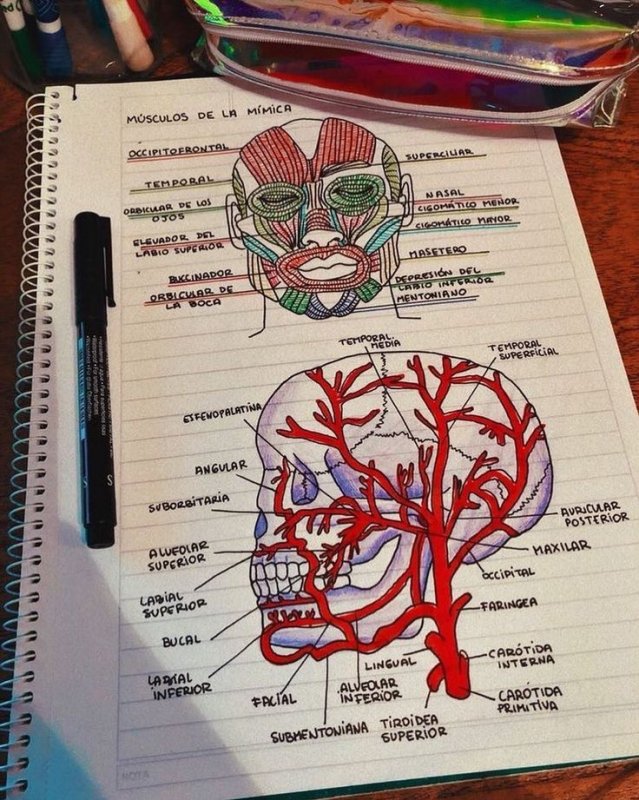 MÚSCULOS DE LA MÍMICA
OCCIPITOFRONTAL
TEMPORAL
ORBICULAR DE LOS
OJOS
ELEVADOR DEL
LABIO SUPERIOR
BUCCINADOR
ORBICULAR DE
LA BOCA
SUPERCILIAR
NASAL
CIGOMÁTICO MENOR
CIGOMÁTICO MAYOR
MASETERO
DEPRESIÓN DEL
LABIO INFERIOR
MENTONIANO
TEMPORAL
MEDIA
TEMPORAL
SUPERFICIAL
ESFENOPALATINA
ANGULAR
SUBORBITARIA
ALVEOLAR
SUPERIOR
LABIAL
SUPERIOR
BUCAL
LABIAL
INFERIOR
FACIAL
SUBMENTONIANA
ALVEOLAR
INFERIOR
TIROIDEA
SUPERIOR
LINGUAL
AURICULAR
POSTERIOR
MAXILAR
OCCIPITAL
FARINGEA
CARÓTIDA
INTERNA
CARÓTIDA
PRIMITIVA
NOTA
S